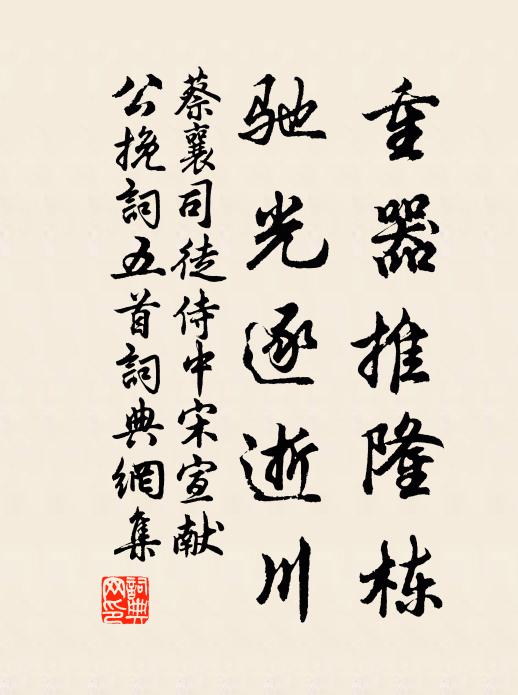 重器推隆栋
驰光逐逝川
蔡襄司徒侍中宋宣献
公挽詞五首詞典網集
詞典網印